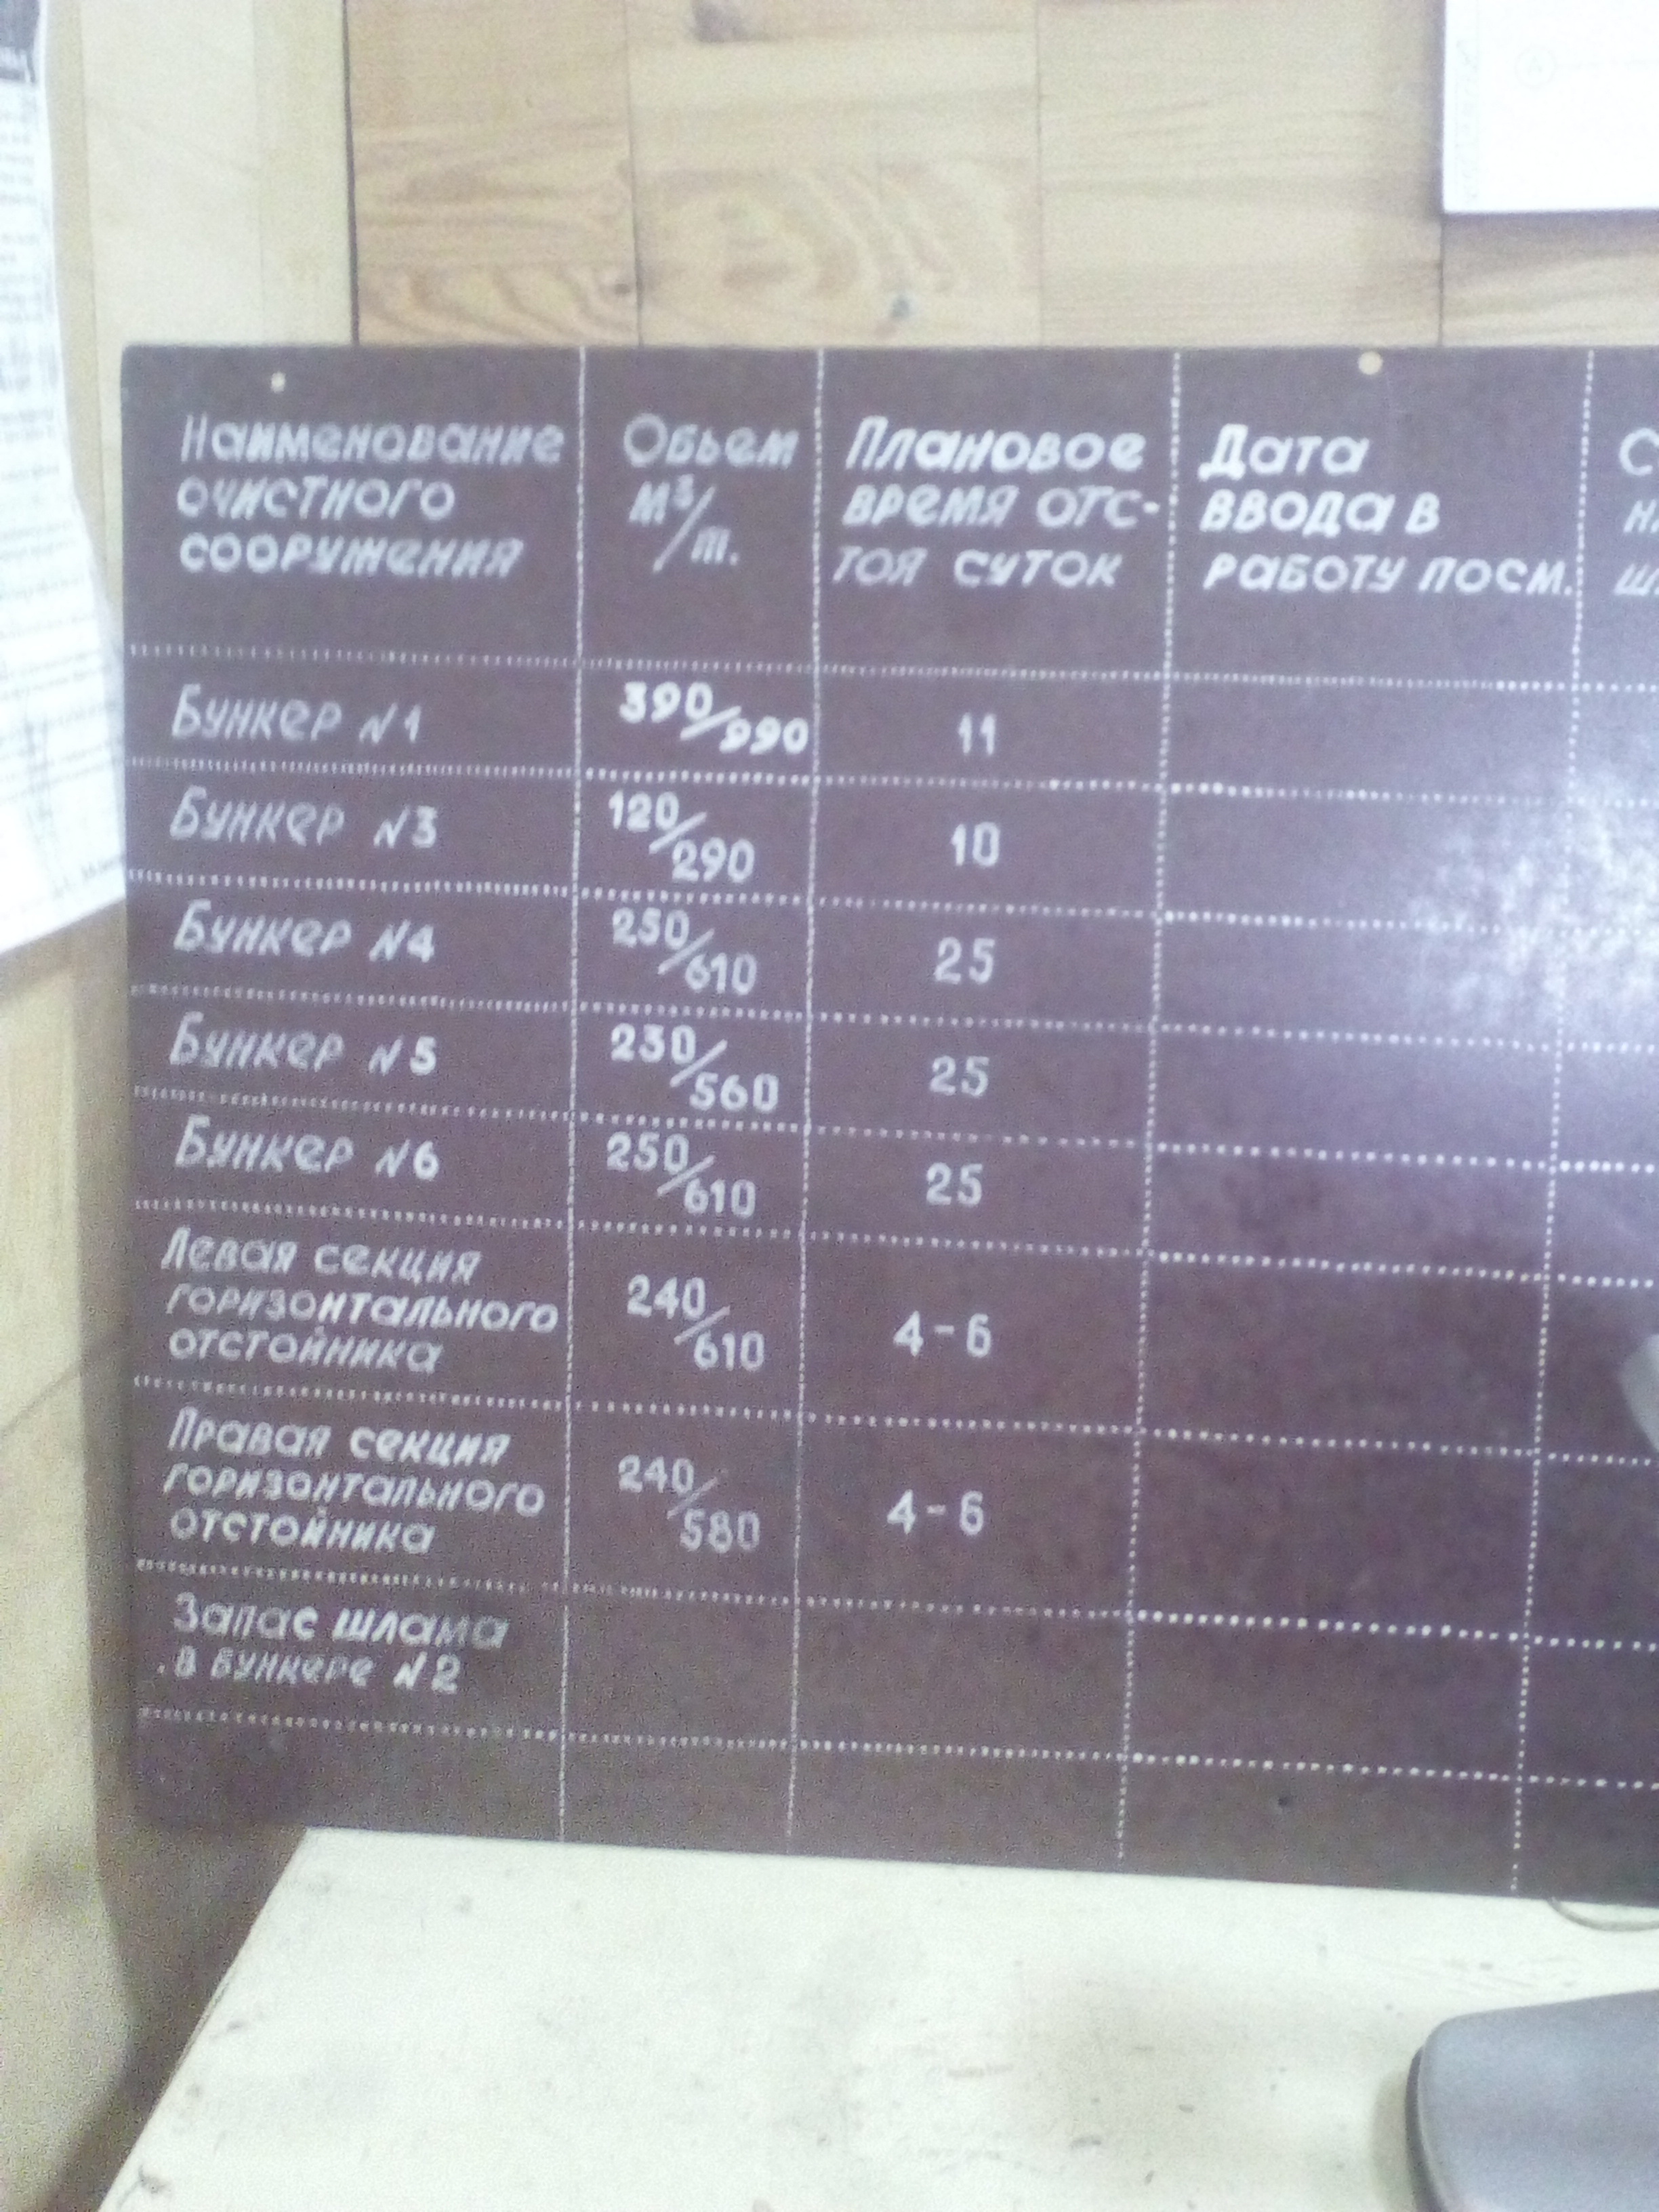 Наименование
очистного
сооружения
Обьем
м³/т.
Плановое
время отс-
тоя суток
Дата
ввода в
работу посм.
Бункер N1
390/990
11
Бункер N3
120/290
10
Бункер N4
250/610
25
Бункер N5
230/560
25
Бункер N6
250/610
25
Левая секция
горизонтального
отстойника
240/610
4-6
Правая секция
горизонтального
отстойника
240/580
4-6
Запас шлама
в бункере N2